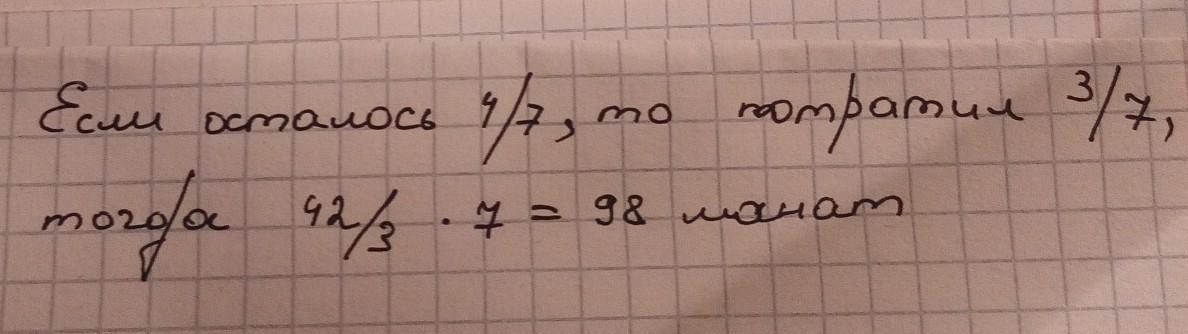 Если осталось 4/7, то потратил 3/7,
тогда 42/3 · 7 = 98 манат